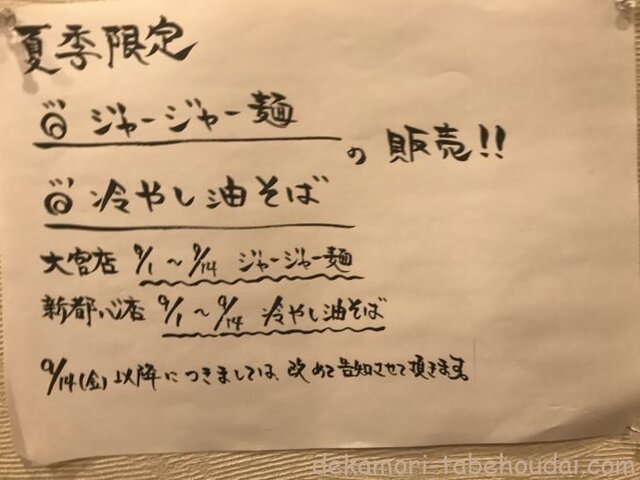 夏季限定
ジャージャー麺
の 販売!!
冷やし油そば
大宮店 9/1〜9/14 ジャージャー麺
新都心店 9/1〜9/14 冷やし油そば
9/14(金)以降につきましては、改めて告知させて頂きます。
dekamori-tabehoudai.com